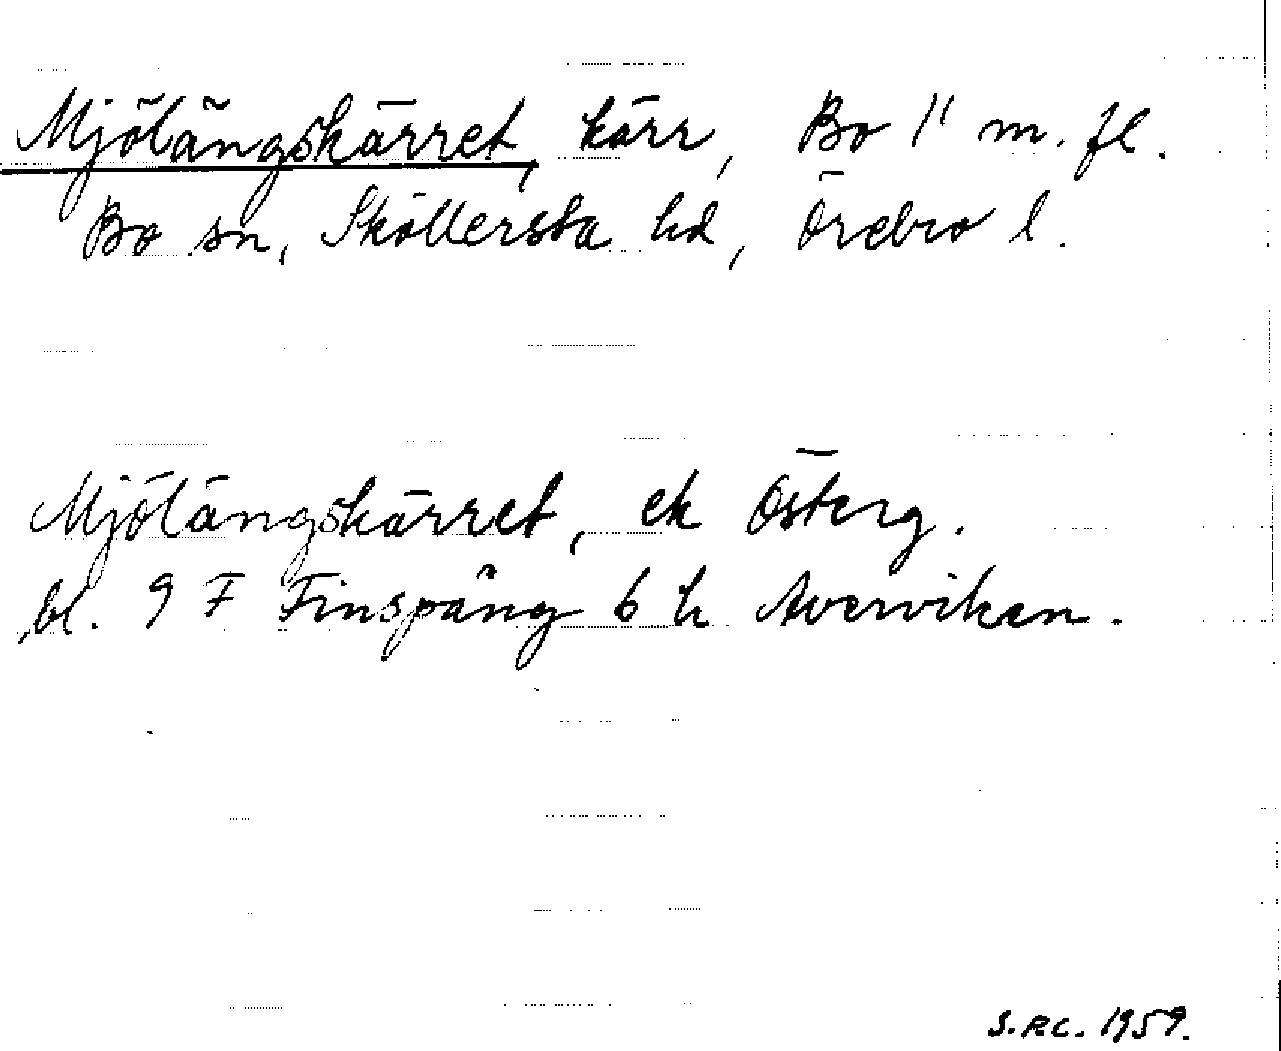 Mjölängskärret, kärr, Bo 1" m. fl.
Bo sn, Sköllersta hd, Örebro l.
Mjölängskärret, ek Österg.
bl. 9 F Finspång 6 h Averviken.
S.RC. 1959.